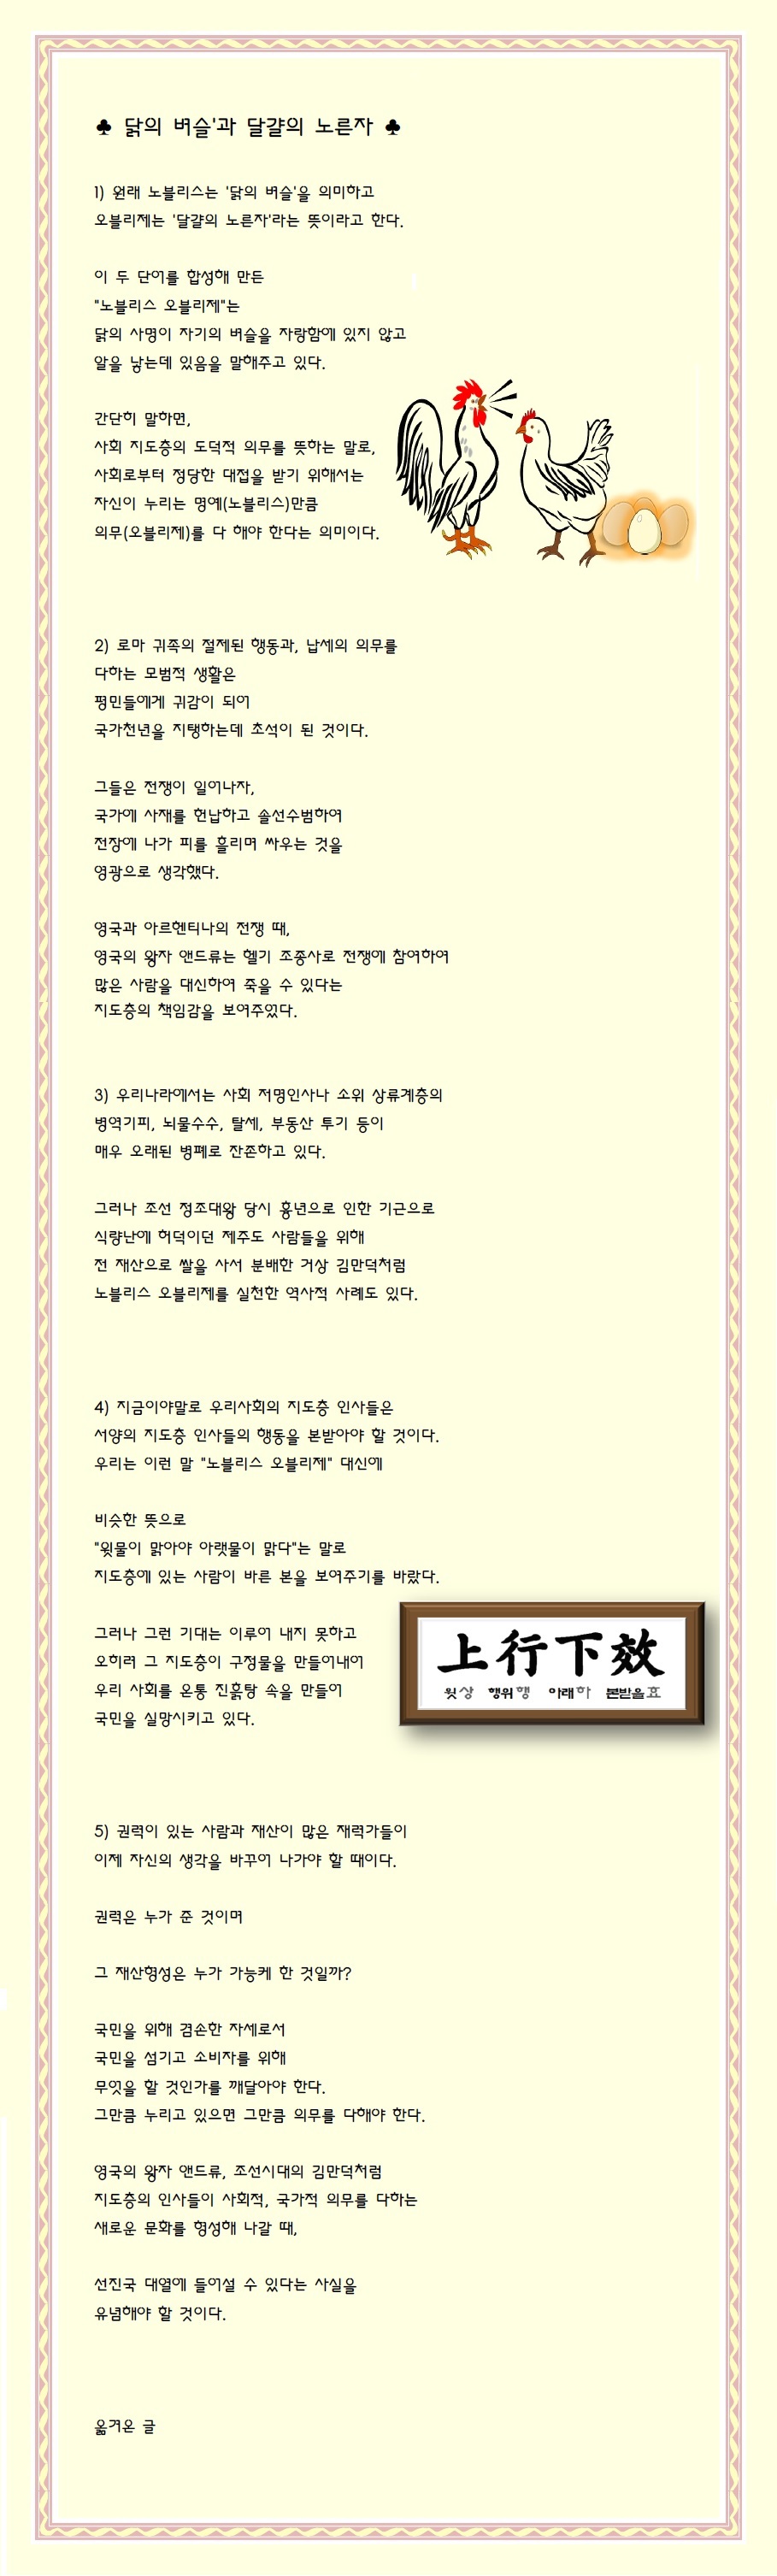 ♣ 닭의 벼슬'과 달걀의 노른자 ♣
1) 원래 노블리스는 '닭의 벼슬'을 의미하고
오블리제는 '달걀의 노른자'라는 뜻이라고 한다.
이 두 단어를 합성해 만든
"노블리스 오블리제"는
닭의 사명이 자기의 벼슬을 자랑함에 있지 않고
알을 낳는데 있음을 말해주고 있다.
간단히 말하면,
사회 지도층의 도덕적 의무를 뜻하는 말로,
사회로부터 정당한 대접을 받기 위해서는
자신이 누리는 명예(노블리스)만큼
의무(오블리제)를 다 해야 한다는 의미이다.
2) 로마 귀족의 절제된 행동과, 납세의 의무를
다하는 모범적 생활은
평민들에게 귀감이 되어
국가천년을 지탱하는데 초석이 된 것이다.
그들은 전쟁이 일어나자,
국가에 사재를 헌납하고 솔선수범하여
전장에 나가 피를 흘리며 싸우는 것을
영광으로 생각했다.
영국과 아르헨티나의 전쟁 때,
영국의 왕자 앤드류는 헬기 조종사로 전쟁에 참여하여
많은 사람을 대신하여 죽을 수 있다는
지도층의 책임감을 보여주있다.
3) 우리나라에서는 사회 저명인사나 소위 상류계층의
병역기피, 뇌물수수, 탈세, 부동산 투기 등이
매우 오래된 병폐로 잔존하고 있다.
그러나 조선 정조대왕 당시 흉년으로 인한 기근으로
식량난에 허덕이던 제주도 사람들을 위해
전 재산으로 쌀을 사서 분배한 거상 김만덕처럼
노블리스 오블리제를 실천한 역사적 사례도 있다.
4) 지금이야말로 우리사회의 지도층 인사들은
서양의 지도층 인사들의 행동을 본받아야 할 것이다.
우리는 이런 말 "노블리스 오블리제" 대신에
비슷한 뜻으로
"윗물이 맑아야 아랫물이 맑다"는 말로
지도층에 있는 사람이 바른 본을 보여주기를 바랐다.
그러나 그런 기대는 이루어 내지 못하고
오히려 그 지도층이 구정물을 만들어내어
우리 사회를 온통 진흙탕 속을 만들어
국민을 실망시키고 있다.
上行下效
윗상 행위행 아래하 본받을효
5) 권력이 있는 사람과 재산이 많은 재력가들이
이제 자신의 생각을 바꾸어 나가야 할 때이다.
권력은 누가 준 것이며
그 재산형성은 누가 가능케 한 것일까?
국민을 위해 겸손한 자세로서
국민을 섬기고 소비자를 위해
무엇을 할 것인가를 깨달아야 한다.
그만큼 누리고 있으면 그만큼 의무를 다해야 한다.
영국의 왕자 앤드류, 조선시대의 김만덕처럼
지도층의 인사들이 사회적, 국가적 의무를 다하는
새로운 문화를 형성해 나갈 때,
선진국 대열에 들어설 수 있다는 사실을
유념해야 할 것이다.
옮겨온 글